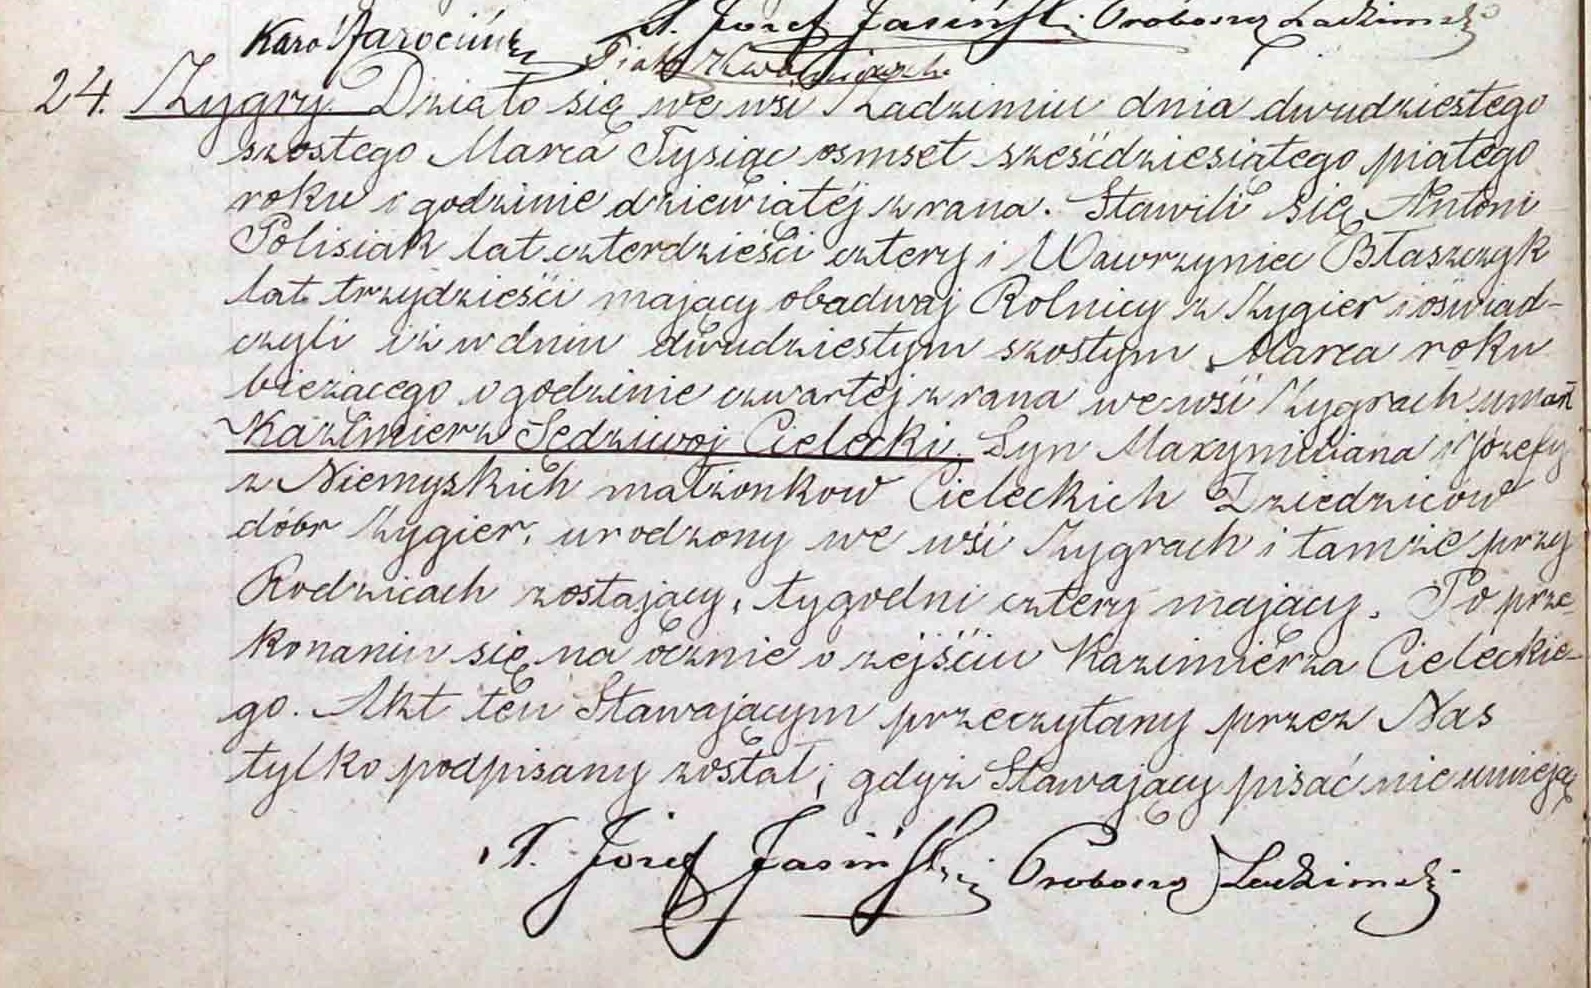 Karol Jarociński X. Józef Jasiński Proboszcz Zadzimski
Piotr
24. Zygry Działo się we wsi Zadzimiu dnia dwudziestego
szóstego Marca Tysiąc osmset sześćdziesiątego piątego
roku o godzinie dziewiątéj z rana. Stawili się Antoni
Polisiak lat czterdzieści cztery i Wawrzyniec Błaszczyk
lat trzydzieści mający obadwaj Rolnicy z Zygier i oświad-
czyli iż w dniu dwudziestym szostym Marca roku
bieżącego o godzinie czwartéj z rana we wsi Zygrach umarł
Kaźimierz Sędziwoj Cielecki. Syn Maxymiliana i Józefy
z Niemyskich małżonkow Cieleckich Dziedziców
dóbr Zygier, urodzony we wśi Zygrach i tamże przy
Rodzicach zostający, tygodni cztery mający. Po prze-
konaniu się na ocznie o zejściu Kazimierza Cieleckie-
go. Akt ten Stawającym przeczytany przez Nas
tylko podpisany został; gdyż Stawający pisać nie umieją
X. Józef Jasiński Proboszcz Zadzimski